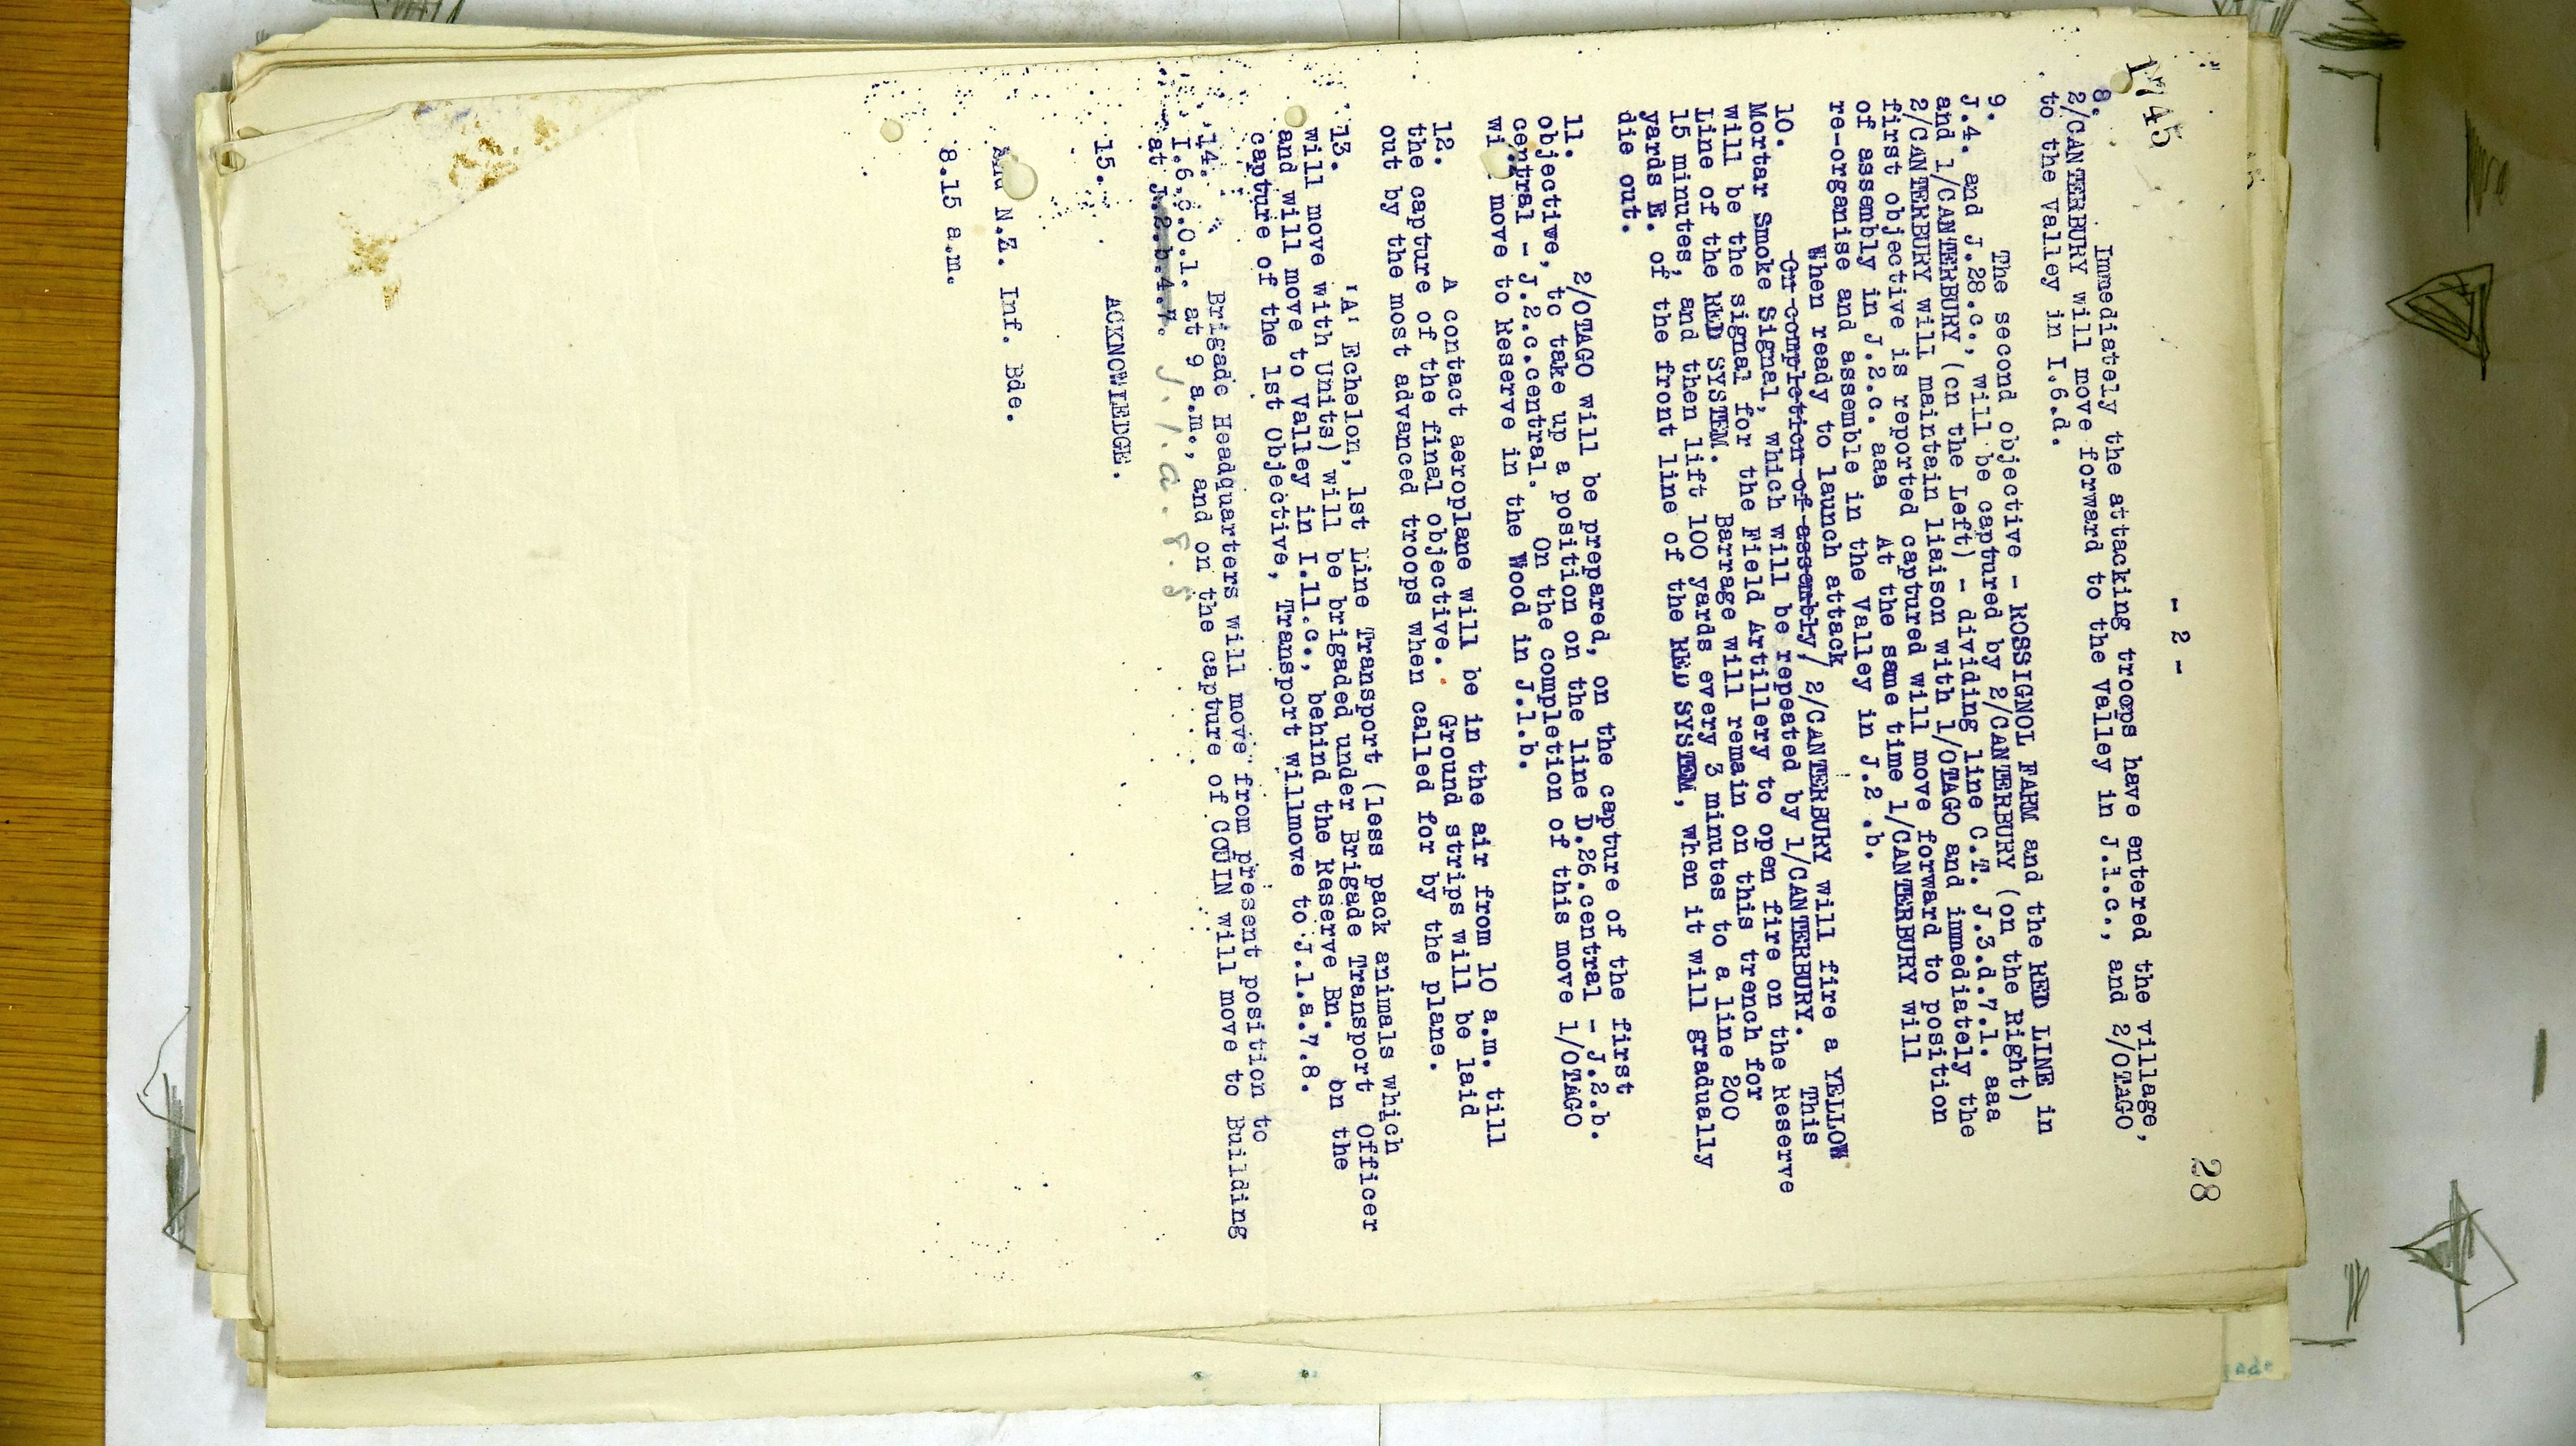 1745
- 2 -
28
8. Immediately the attacking troops have entered the village,
2/CANTERBURY will move forward to the valley in J.1.c., and 2/OTAGO
to the valley in I.6.d.
9. The second objective - ROSSIGNOL FARM and the RED LINE in
J.4. and J.28.c., will be captured by 2/CANTERBURY (on the Right)
and 1/CANTERBURY (on the Left) - dividing line C.T. J.3.d.7.1. aaa
2/CANTERBURY will maintain liaison with 1/OTAGO and immediately the
first objective is reported captured will move forward to position
of assembly in J.2.c. aaa At the same time 1/CANTERBURY will
re-organise and assemble in the Valley in J.2.b.
When ready to launch attack
10. On completion of assembly/ 2/CANTERBURY will fire a YELLOW
Mortar Smoke Signal, which will be repeated by 1/CANTERBURY. This
will be the signal for the Field Artillery to open fire on the Reserve
Line of the RED SYSTEM. Barrage will remain on this trench for
15 minutes, and then lift 100 yards every 3 minutes to a line 200
yards E. of the front line of the RED SYSTEM, when it will gradually
die out.
11. 2/OTAGO will be prepared, on the capture of the first
objective, to take up a position on the line D.26.central - J.2.b.
central - J.2.c.central. On the completion of this move 1/OTAGO
wi move to Reserve in the Wood in J.1.b.
12. A contact aeroplane will be in the air from 10 a.m. till
the capture of the final objective. Ground strips will be laid
out by the most advanced troops when called for by the plane.
13. 'A' Echelon, 1st Line Transport (less pack animals which
will move with Units) will be brigaded under Brigade Transport Officer
and will move to Valley in I.11.c., behind the Reserve Bn. on the
capture of the 1st Objective, Transport willmove to J.1.a.7.8.
14. Brigade Headquarters will move from present position to
I.6.c.0.1. at 9 a.m., and on the capture of COUIN will move to Building
at J.2.b.4.7. J.1.a.8.8
15. ACKNOWLEDGE.
2nd N.Z. Inf. Bde.
8.15 a.m.
ade